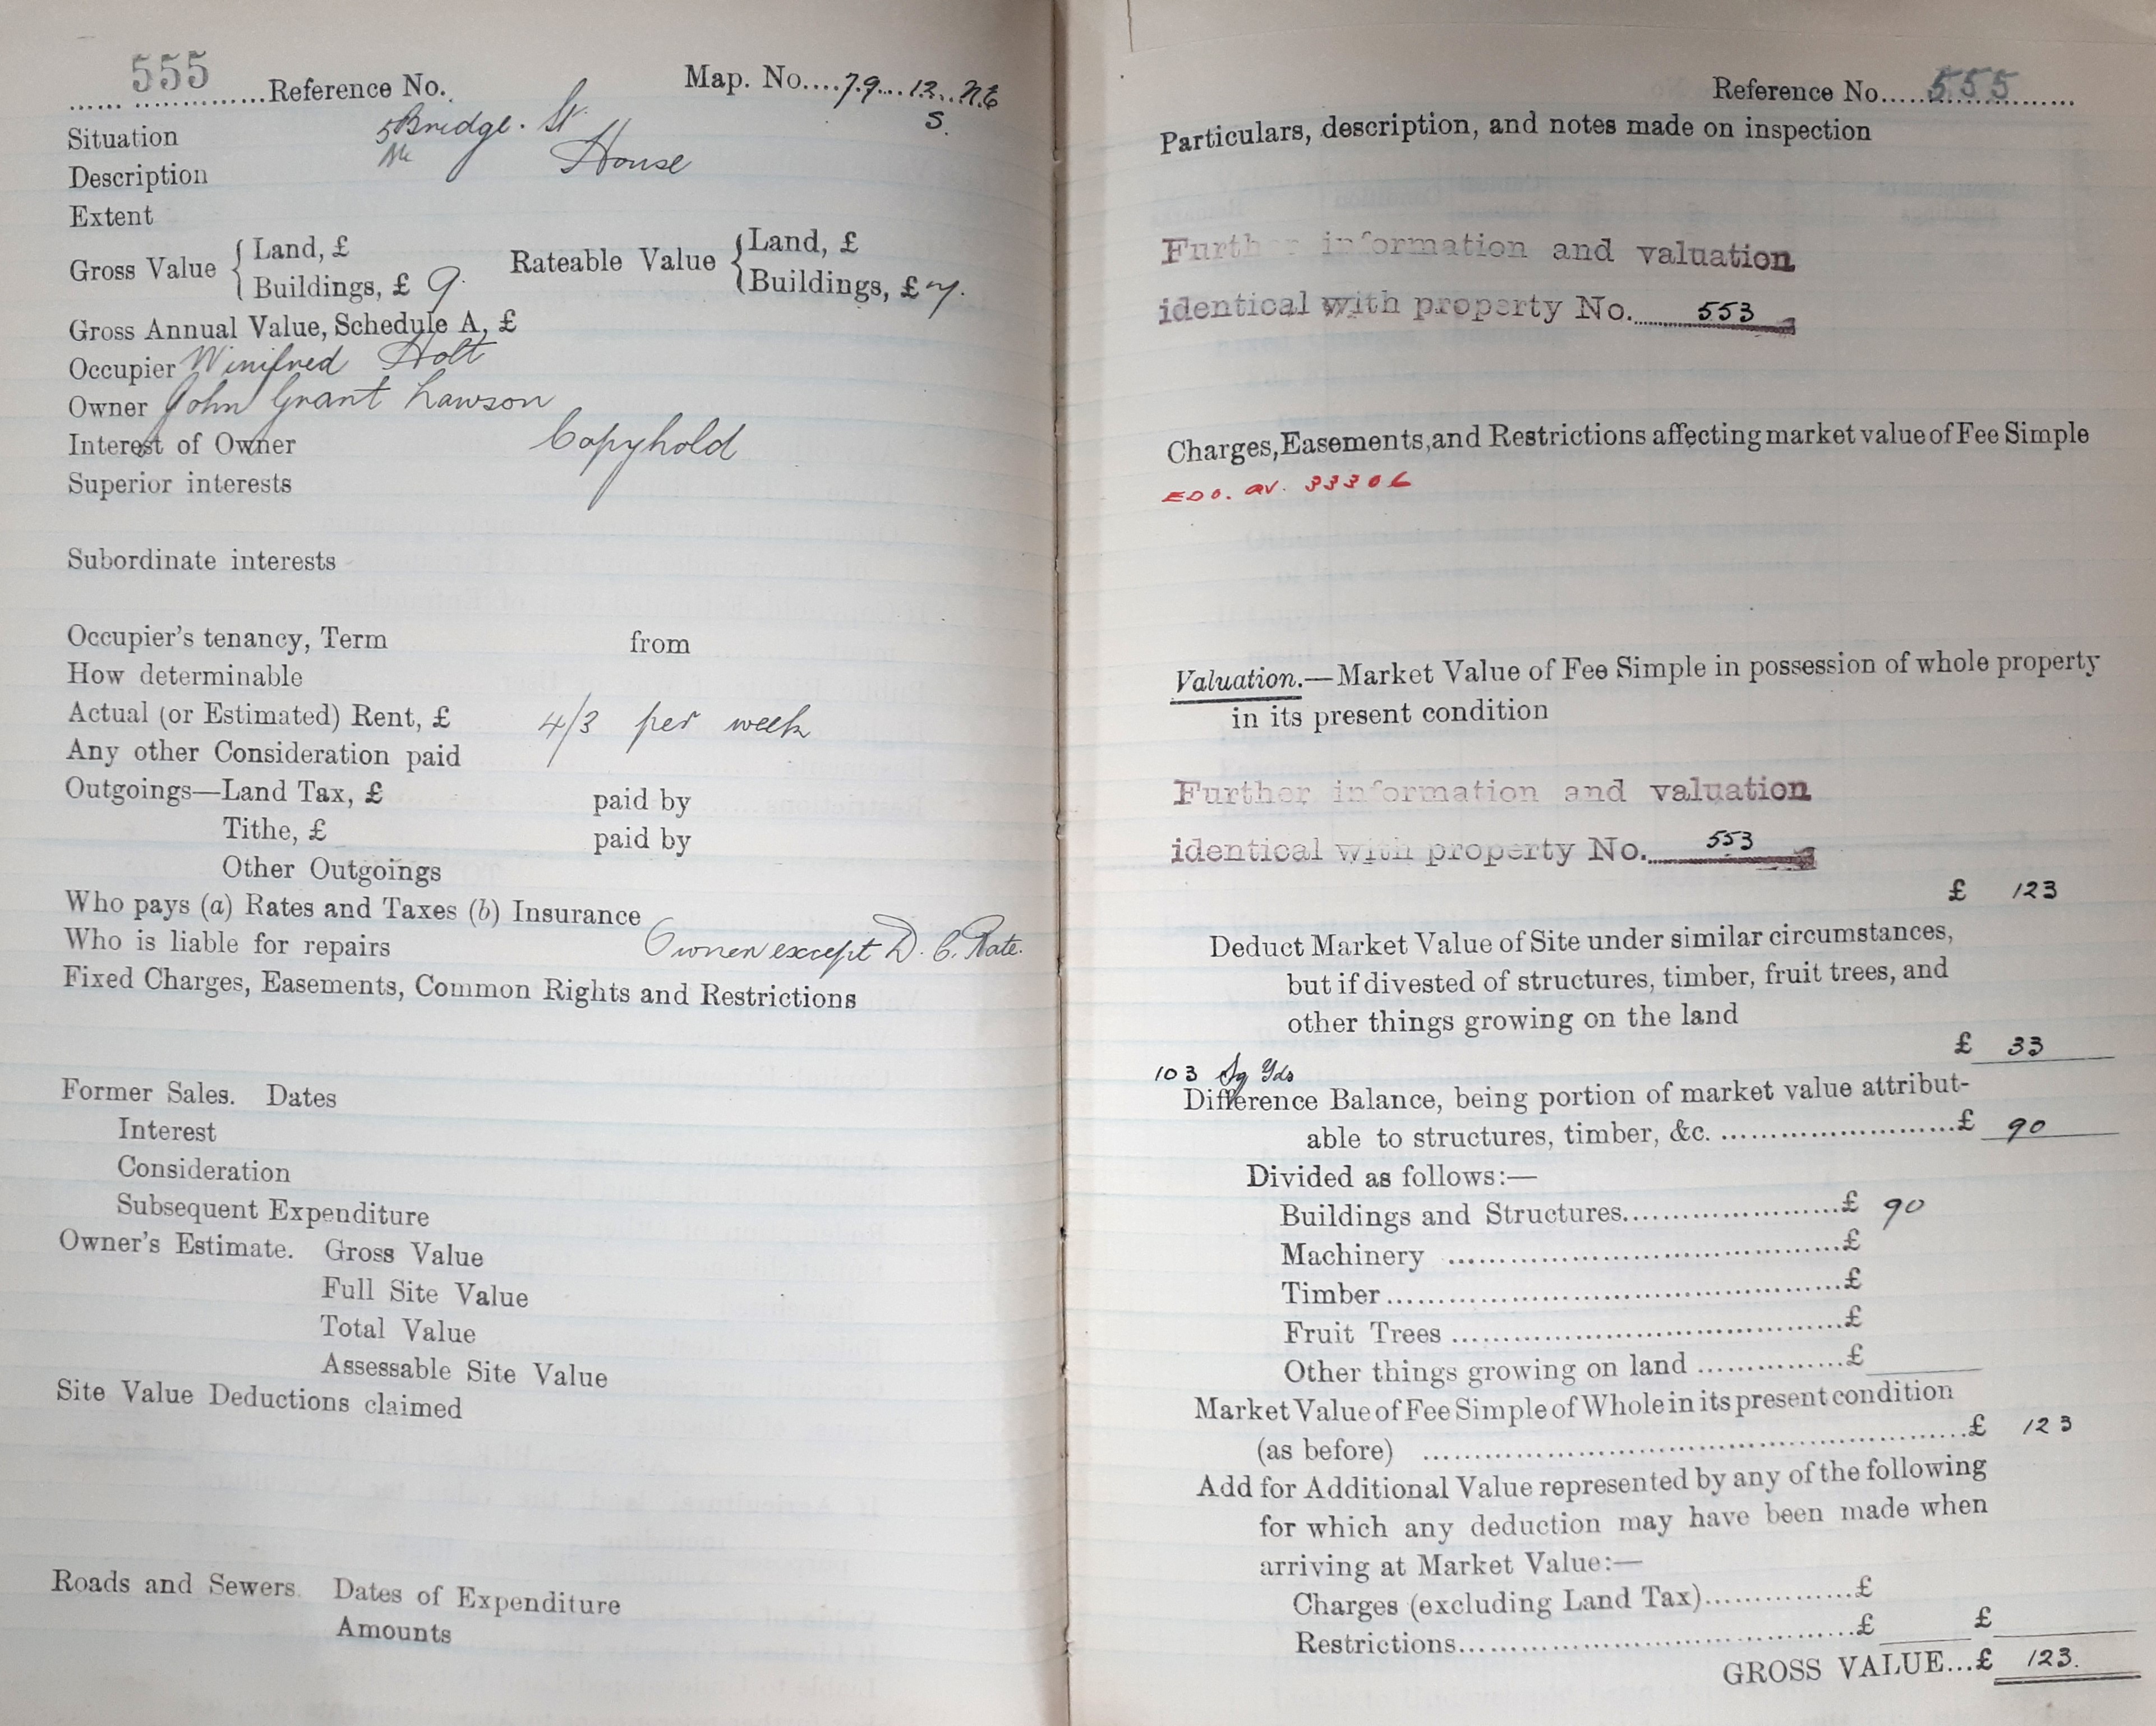 555
...... ...............Reference No.
Map. No....79...12...N.E
S.
Situation 5 Bridge. St.
Description House
Extent
Gross Value { Land, £
Buildings, £ 9.
Rateable Value { Land, £
Buildings, £ 7.
Gross Annual Value, Schedule A, £
Occupier Winifred Holt
Owner John Grant Lawson
Interest of Owner Copyhold
Superior interests
Subordinate interests
Occupier's tenancy, Term from
How determinable
Actual (or Estimated) Rent, £ 4/3 per week
Any other Consideration paid
Outgoings—Land Tax, £ paid by
Tithe, £ paid by
Other Outgoings
Who pays (a) Rates and Taxes (b) Insurance
Who is liable for repairs Owner except D. C. Rate.
Fixed Charges, Easements, Common Rights and Restrictions
Former Sales. Dates
Interest
Consideration
Subsequent Expenditure
Owner's Estimate. Gross Value
Full Site Value
Total Value
Assessable Site Value
Site Value Deductions claimed
Roads and Sewers. Dates of Expenditure
Amounts
Reference No. 555
Particulars, description, and notes made on inspection
Further information and valuation
identical with property No. 553
Charges, Easements, and Restrictions affecting market value of Fee Simple
33306
Valuation.—Market Value of Fee Simple in possession of whole property
in its present condition
Further information and valuation
identical with property No. 553
£ 123
Deduct Market Value of Site under similar circumstances,
but if divested of structures, timber, fruit trees, and
other things growing on the land
£ 33
103 Sq Yds
Difference Balance, being portion of market value attribut-
able to structures, timber, &c. ...........................£ 90
Divided as follows:—
Buildings and Structures.........................£ 90
Machinery .............................................£
Timber.....................................................£
Fruit Trees ..............................................£
Other things growing on land .................£
Market Value of Fee Simple of Whole in its present condition
(as before) ...............................................................£ 123
Add for Additional Value represented by any of the following
for which any deduction may have been made when
arriving at Market Value:—
Charges (excluding Land Tax)................£
Restrictions................................................£ £
GROSS VALUE...£ 123.